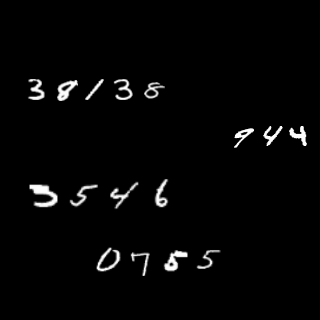 38138
944
3546
0755